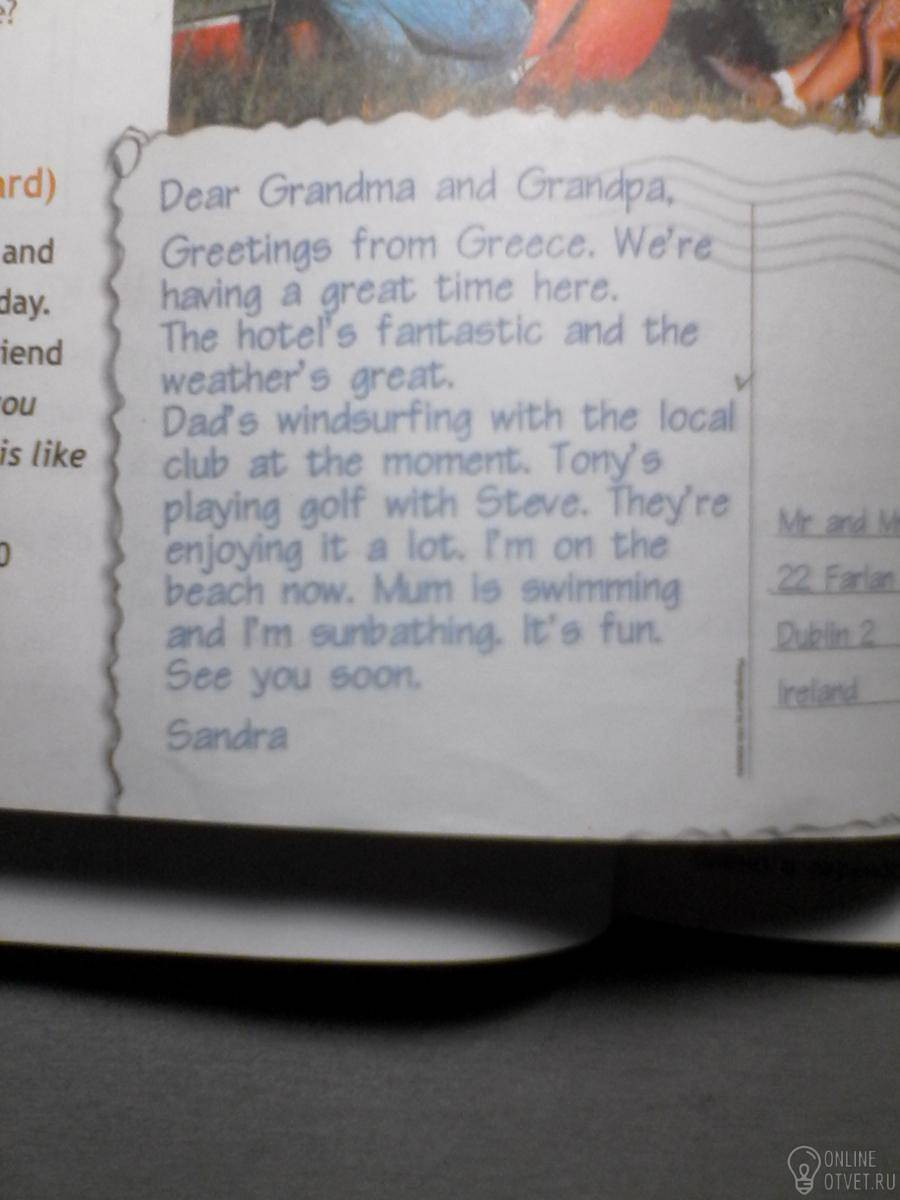 e?
ard)
and
day.
iend
ou
is like
0
Dear Grandma and Grandpa,
Greetings from Greece. We're
having a great time here.
The hotel's fantastic and the
weather's great.
Dad's windsurfing with the local
club at the moment. Tony's
playing golf with Steve. They're
enjoying it a lot. I'm on the
beach now. Mum is swimming
and I'm sunbathing. It's fun.
See you soon.
Sandra
Mr and M
22 Farlan
Dublin 2
Ireland
ONLINE
OTVET.RU